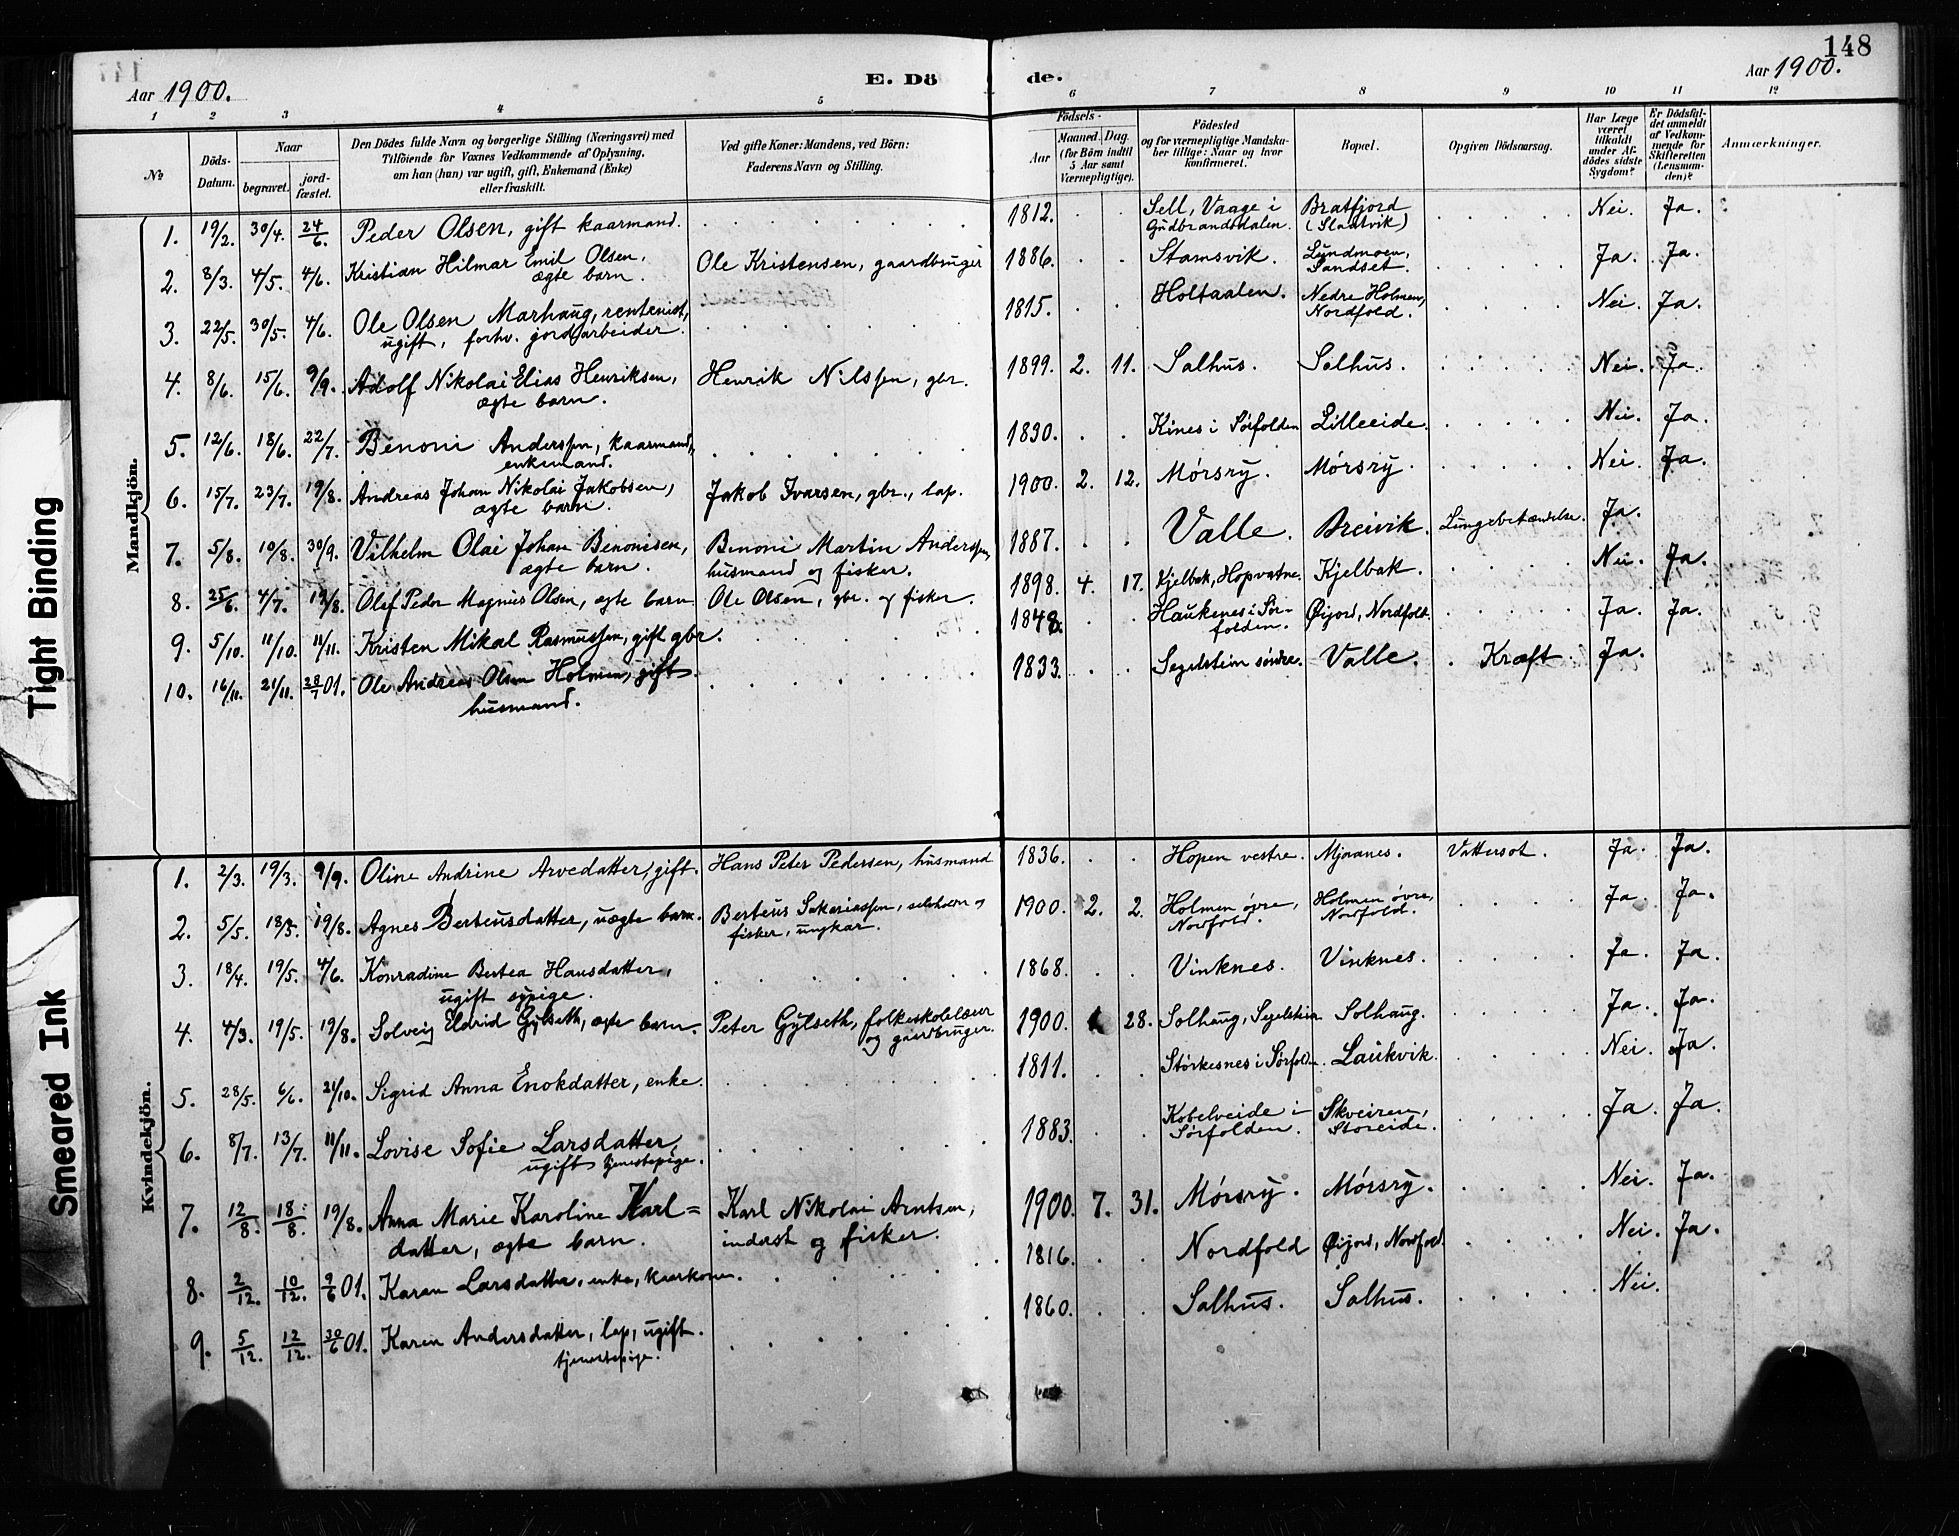 148
Aar 1900.
E. Dö
de.
Aar 1900.
1 2 3 4 5 6 7 8 9 10 11 12
№
Döds-Datum.
Naar
begravet.
jord-fæstet.
Den Dödes fulde Navn og borgerlige Stilling (Næringsvei) med
Tilföiende for Voxnes Vedkommende af Oplysning,
om han (hun) var ugift, gift, Enkemand (Enke)
eller fraskilt.
Ved gifte Koner: Mandens, ved Börn:
Faderens Navn og Stilling.
Födsels-
Aar
Maaned. Dag.
(for Börn indtil
5 Aar samt
Værnepligtige).
Födested
og for værnepligtige Mandska-
ber tillige: Naar og hvor
konfirmeret.
Bopæl.
Opgiven Dödsaarsag.
Har Læge
været
tilkaldt
under Af-
dödes sidste
Sygdom?
Er Dödsfal-
det anmeldt
af Vedkom-
mende for
Skifteretten
(Lensman-
den)?
Anmærkninger.
Mandkjön.
1. 19/2. 30/4. 24/6. Peder Olsen, gift kaarmand. 1812. Sell, Vaage i Gudbrandsdalen. Bratfjord (Sladtvik) Nei. Ja.
2. 8/3. 4/5. 4/6. Kristian Hilmar Emil Olsen, ægte barn. Ole Kristensen, gaardbruger 1886. Stamsvik. Lundmoen, Sandset. Ja. Ja.
3. 22/5. 30/5. 4/6. Ole Olsen Marhaug, rentenist, ugift, forhv. jordarbeider. 1815. Holtaalen. Nedre Holmen, Nordfold. Nei. Ja.
4. 8/6. 15/6. 9/9. Adolf Nikolai Elias Henriksen, ægte barn. Henrik Nilssen, gbr. 1899. 2. 11. Salhus. Salhus. Nei. Ja.
5. 12/6. 18/6. 22/7. Benoni Anderssen, kaarmand, enkemand. 1830. Kines i Sørfolden Lilleeide. Nei. Ja.
6. 15/7. 23/7. 19/8. Andreas Johan Nikolai Jakobsen, ægte barn. Jakob Ivarsen, gbr., lap. 1900. 2. 12. Mørsry. Mørsry. Nei. Ja.
7. 5/8. 10/8. 30/9. Vilhelm Olai Johan Benonisen, ægte barn. Benoni Martin Anderssen, husmand og fisker. 1887. Valle. Breivik. Lungebetændelse. Ja.
8. 25/6. 4/7. 19/8. Olef Peder Magnus Olsen, ægte barn Ole Olsen, gbr. og fisker. 1898. 4. 17. Kjelbak, Hopvatne. Kjelbak. Nei. Ja.
9. 5/10. 11/10. 11/11. Kristen Mikal Rasmussen, gift gbr. 1848. Haukenes i Sør-folden. Øijord, Nordfold. Ja. Ja.
10. 16/11. 21/11. 28/7 01. Ole Andreas Olsen Holmen, gift husmand. 1833. Segelstein søndre. Valle. Kræft. Ja.
Kvindekjön.
1. 2/3. 19/3. 9/9. Oline Andrine Arvedatter, gift. Hans Peter Pedersen, husmand 1836. Hopen vestre. Mjaanes. Vattersot. Ja. Ja.
2. 5/5. 18/5. 19/8. Agnes Berteusdatter, uægte barn. Berteus Sakariassen, selveier og fisker, ungkar. 1900. 2. 2. Holmen øvre, Nordfold. Holmen øvre, Nordfold. Ja. Ja.
3. 18/4. 19/5. 4/6. Konradine Bertea Hansdatter, ugift sypige. 1868. Vinknes. Vinknes. Ja. Ja.
4. 4/3. 19/5. 19/8. Solveig Eldrid Gylseth, ægte barn. Peter Gylseth, folkeskolelærer og gaardbruger. 1900. 28. Solhaug, Segelstein Solhaug. Ja. Ja.
5. 28/5. 6/6. 21/10. Sigrid Anna Enokdatter, enke. 1811. Størkesnes i Sørfolden. Laukvik. Nei. Ja.
6. 8/7. 13/7. 11/11. Lovise Sofie Larsdatter, ugift tjenestepige. 1883. Kobelveide i Sørfolden. Skveiren, Storeide. Ja. Ja.
7. 12/8. 18/8. 19/8. Anna Marie Karoline Karl=datter, ægte barn. Karl Nikolai Arntsen, inderst og fisker. 1900. 7. 31. Mørsry. Mørsry. Nei. Ja.
8. 2/12. 10/12. 9/6 01. Karen Larsdatter, enke, kaarkone. 1816. Nordfold Øijord, Nordfold. Nei. Ja.
9. 5/12. 12/12. 30/6 01. Karen Andersdatter, lap, ugift tjenestepige. 1860. Salhus. Salhus. Nei.
Tight Binding
Smeared Ink